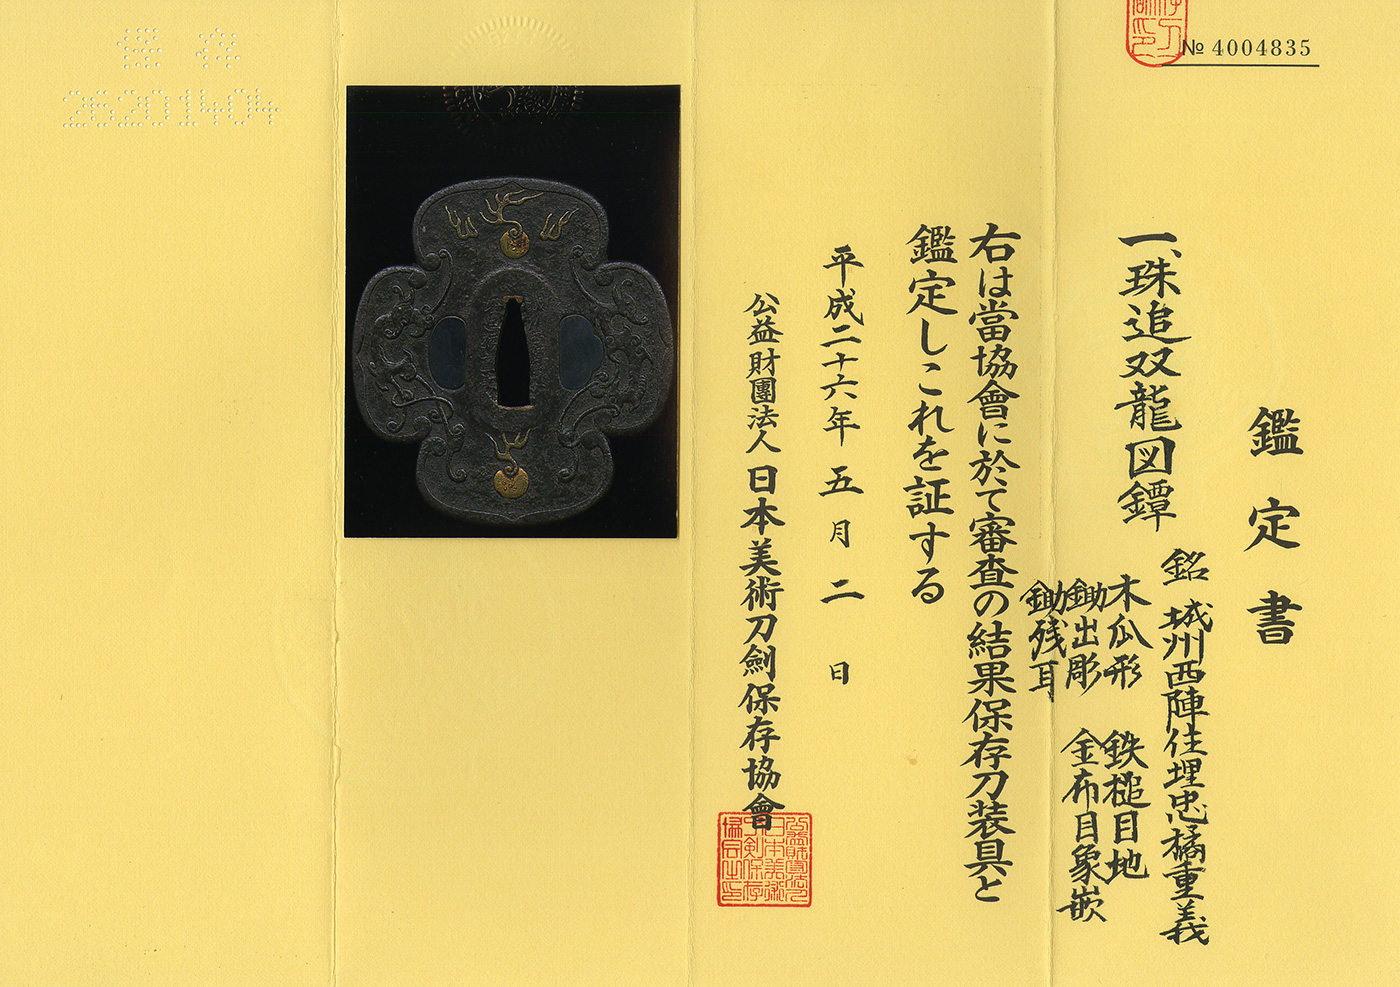 № 4004835
鑑定書
一、珠追双龍図鐔
銘 城州西陣住埋忠橘重義
木瓜形 鉄槌目地
鋤出彫 金布目象嵌
鋤残耳
右は當協會に於て審査の結果保存刀装具と
鑑定しこれを証する
平成二十六年五月二日
公益財團法人 日本美術刀劍保存協會
保存
26201404